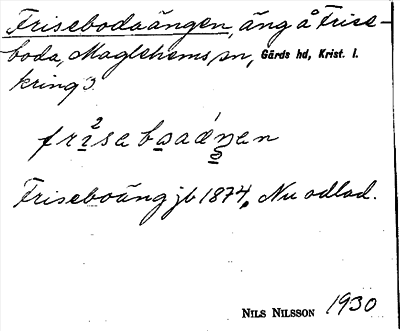 Frisebodaängen, äng å Frise-
boda, Maglehems sn, Gärds hd, Krist. l.
kring 3.
Friseboäng jb 1874. Nu odlad.
NILS NILSSON 1930